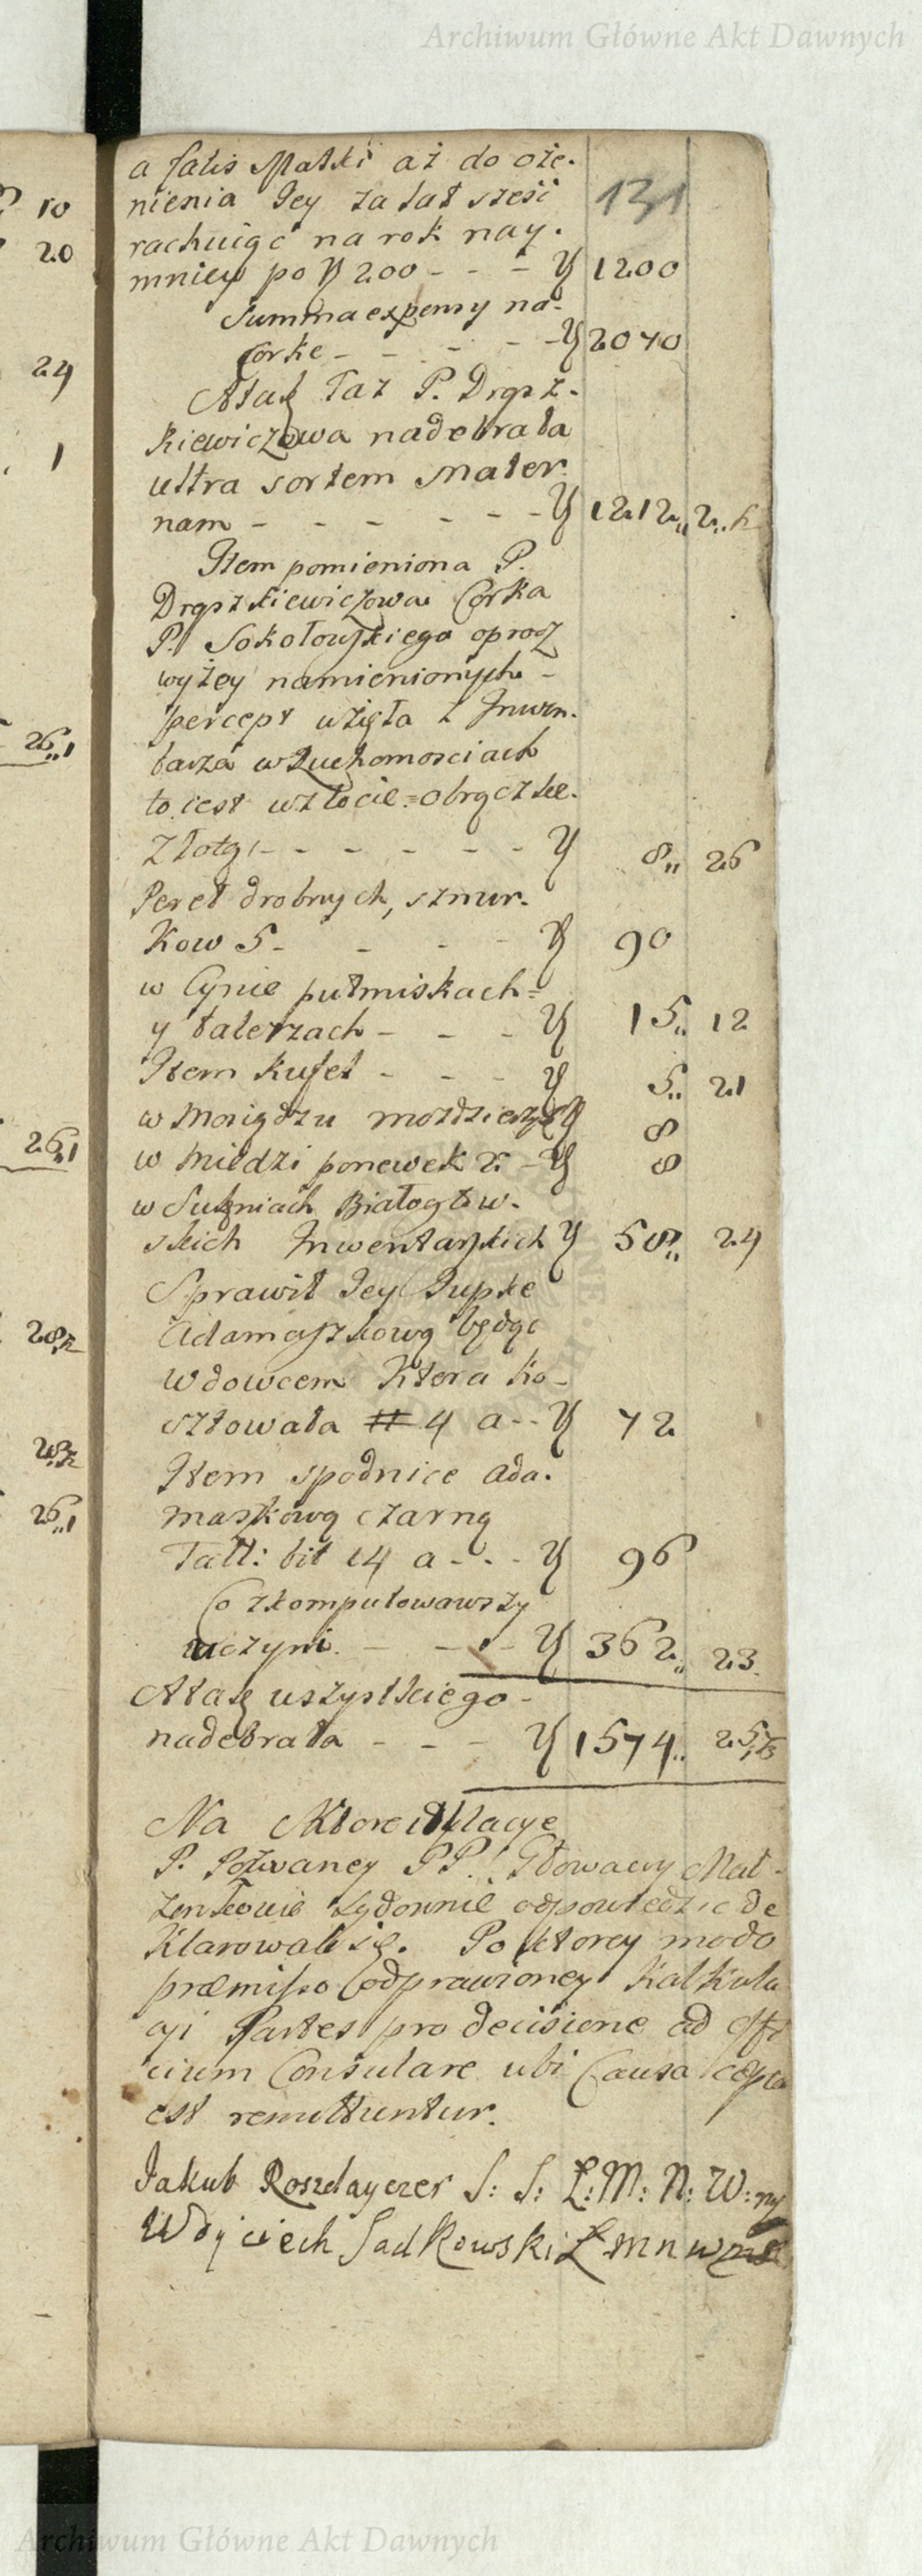 Archiwum Główne Akt Dawnych
a fatis Matki aż do oże-
nienia Jey za lat sześć
131
rachuiąc na rok nay-
mniey po 200 - - - 1200
Summa expensy na
Corke - - - - - 2040
A tak Taz P. Drąsz-
kiewiczowa nadebrała
ultra sortem Mater
nam - - - - - - 1212,, 2,,
Item pomieniona P.
Drąszkiewiczowa Corka
P. Sokołowskiego oprocz
wyżey namienionych
percept wzięła z Inwen-
tarza w Ruchomosciach
to iest w złocie = obrączke
Złotą - - - - - - 8,, 26
Pereł drobnych, sznur-
kow 5 - - - - 90
w Cynie pułmiskach =
y talerzach - - - 15,, 12
Item kufel - - - 5,, 21
w Mosiądzu mozdzierzyk 8
w Miedzi ponewek 2 - 8
w Sukniach Białogłow-
skich Inwentarskich 58,, 24
Sprawił Jey Jupke
Adamaszkową będąc
Wdowcem ktora ko-
sztowała # 4 a - - 72
Item spodnice ada-
maszkową czarną
Tall: bit 14 a - - - 96
Co zkomputowawszy
uczyni - - - - 362,, 23
A tak wszystkiego
nadebrała - - - 1574,, 25
Na Ktore
P. Pozwaney PP. Głowaccy Mał-
żonkowie odpowiedzic de
klarowali się. Po ktorey modo
præmisso odprawioney Kalkula
cyi Partes pro decisione ad Offi
cium Consulare ubi Causa cepta
est remittuntur.
Jakub S: S: Ł: M: N: W: ny
Woyciech Sadkowski Ł M N W
10
20
24
1
26,,1
26,,1
28
28
26,,1
Archiwum Główne Akt Dawnych